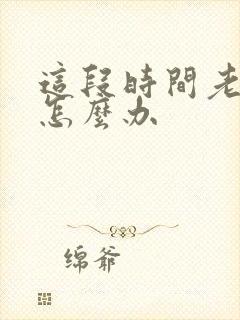 這段時間老
怎麼办
绵爷